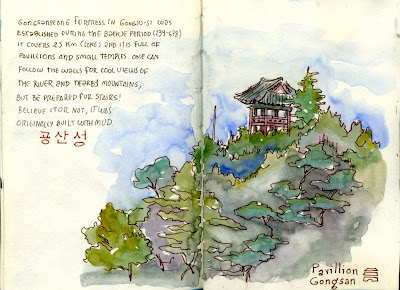 GONGSANSEONG FORTRESS IN GONGJU-SI WAS
ESTABLISHED DURING THE BAEKJE PERIOD (234-678)
IT COVERS 23 KM (LONG) AND IT IS FULL OF
PAVILLIONS AND SMALL TEMPLES. ONE CAN
FOLLOW THE WALLS FOR COOL VIEWS OF
THE RIVER AND NEARBY MOUNTAINS,
BUT BE PREPARED FOR STAIRS!
BELIEVE IT OR NOT, IT WAS
ORIGINALLY BUILT WITH MUD.
공산성
Pavillion
Gongsan